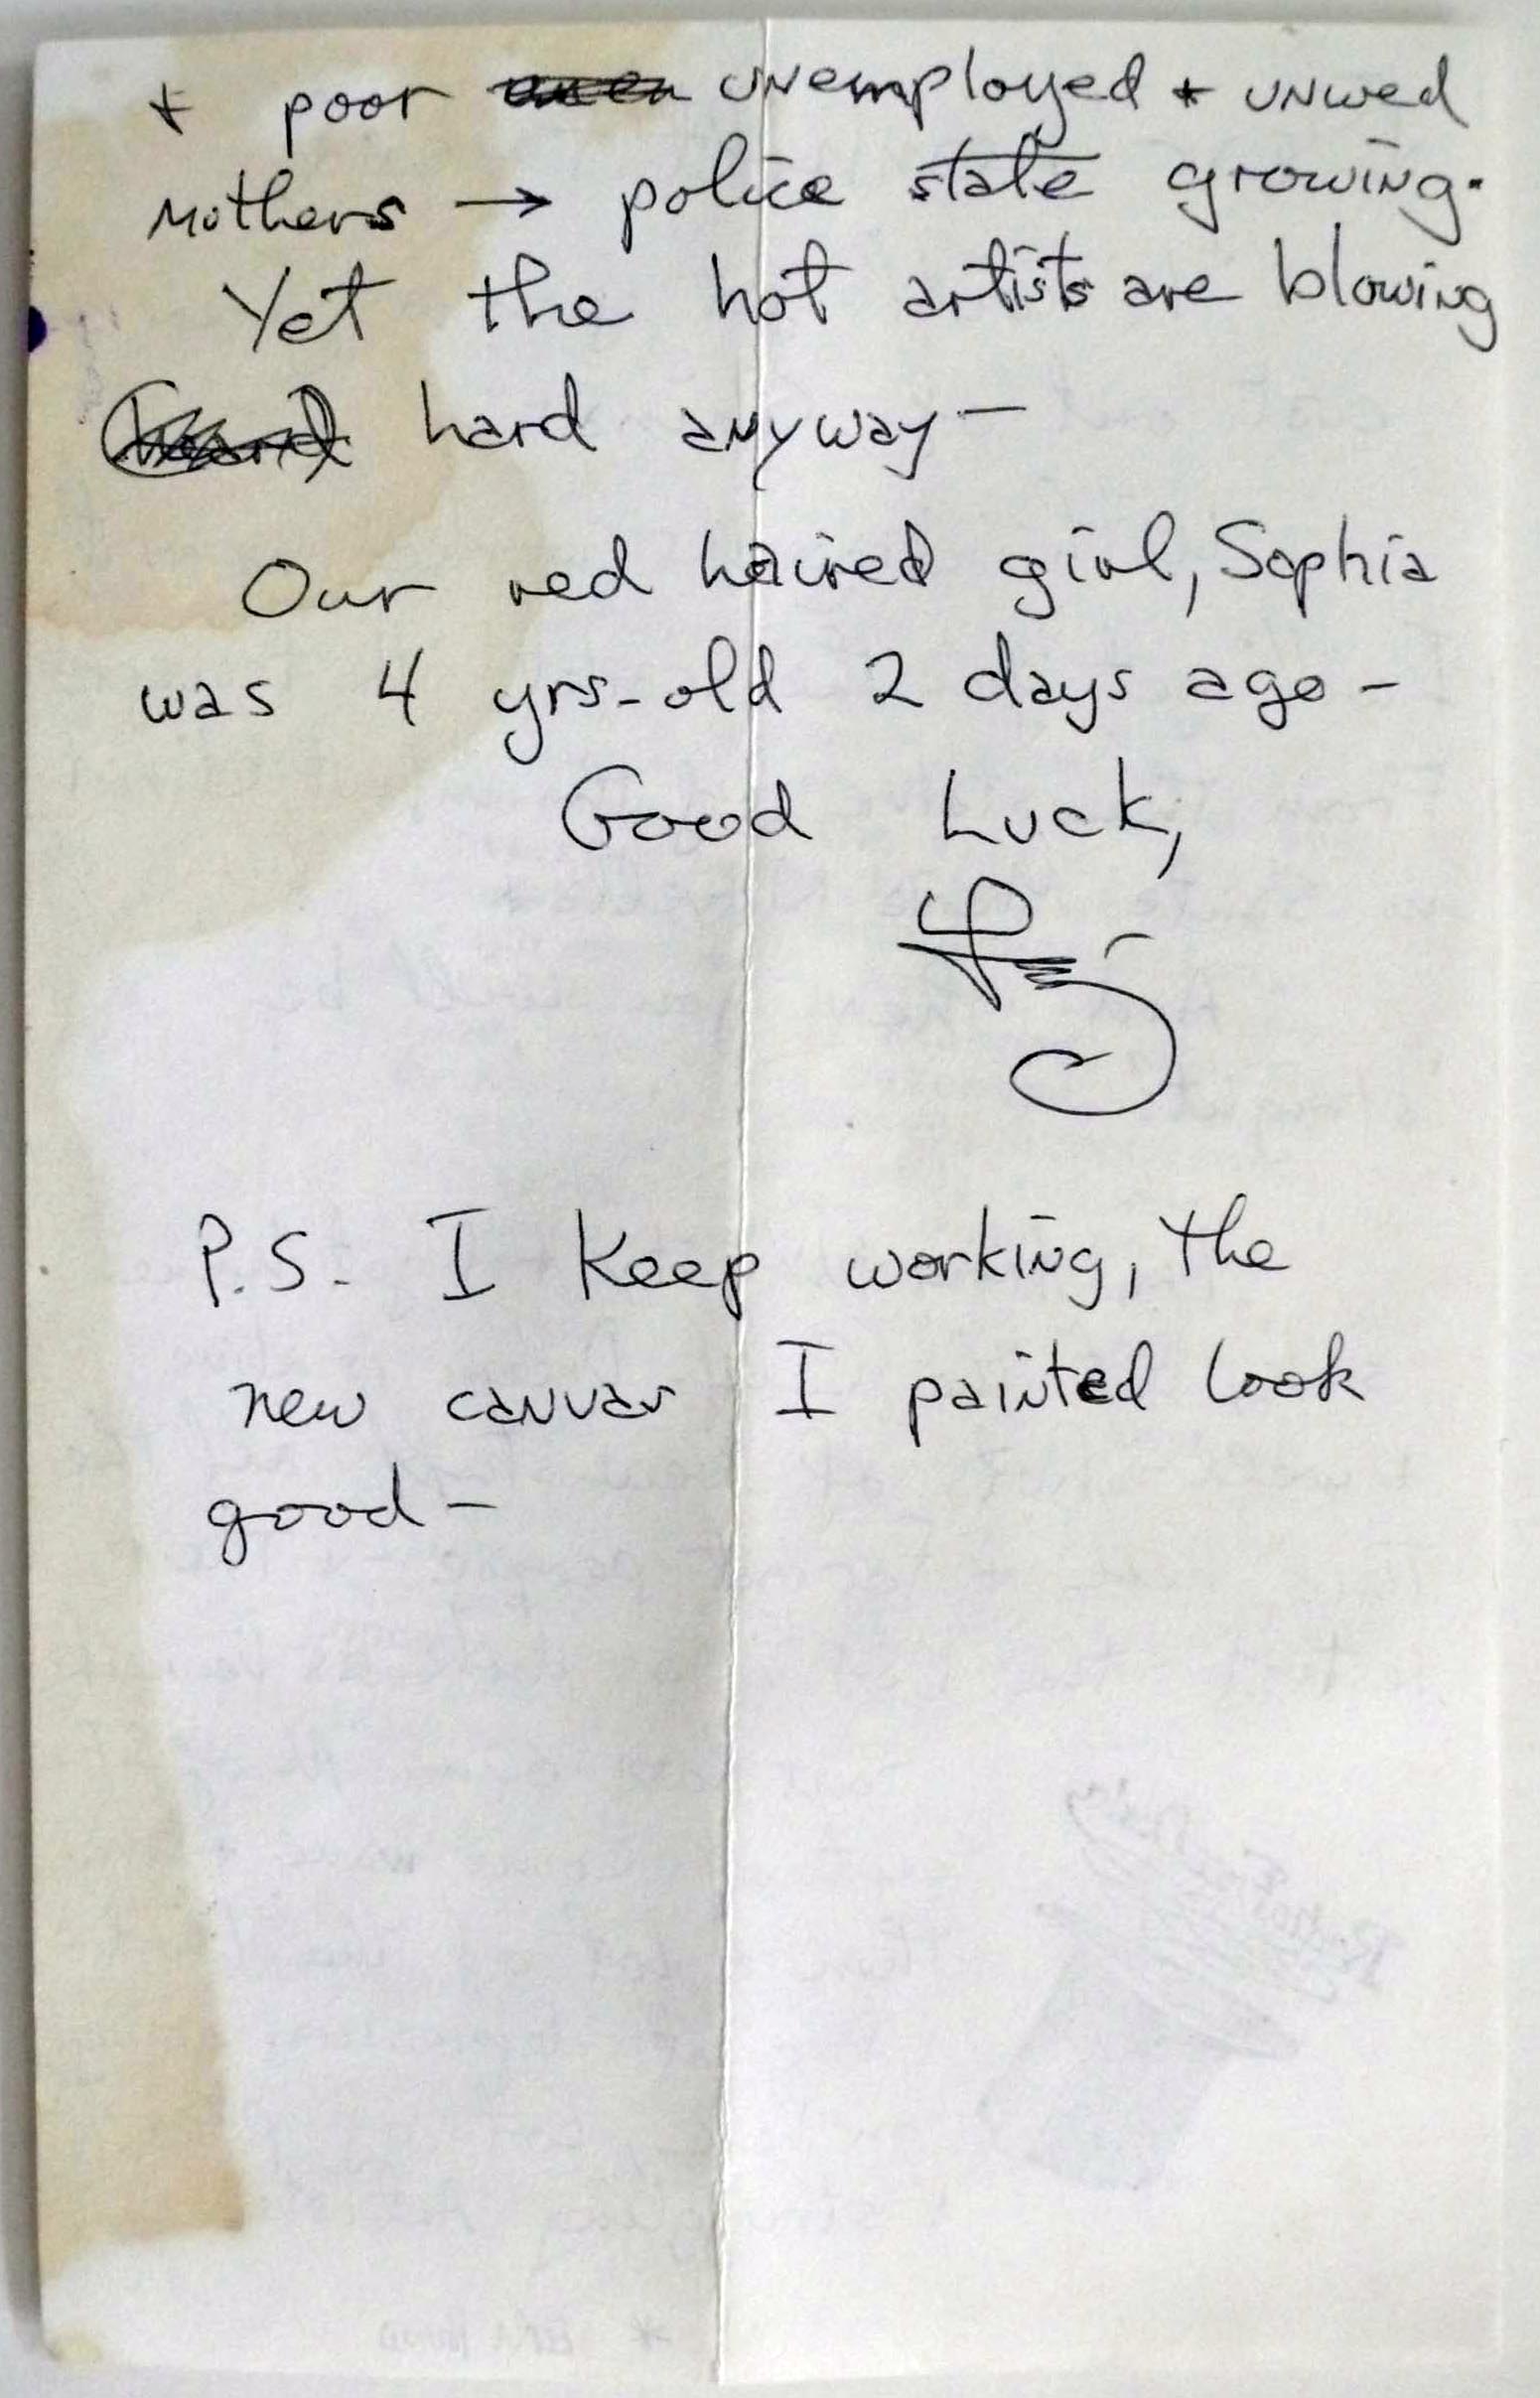 + poor unemployed + unwed
mothers → police state growing.
Yet the hot artists are blowing
hard anyway —
Our red haired girl, Sophia
was 4 yrs-old 2 days ago -
Good Luck,
P.S. I keep working, the
new canvas I painted look
good -